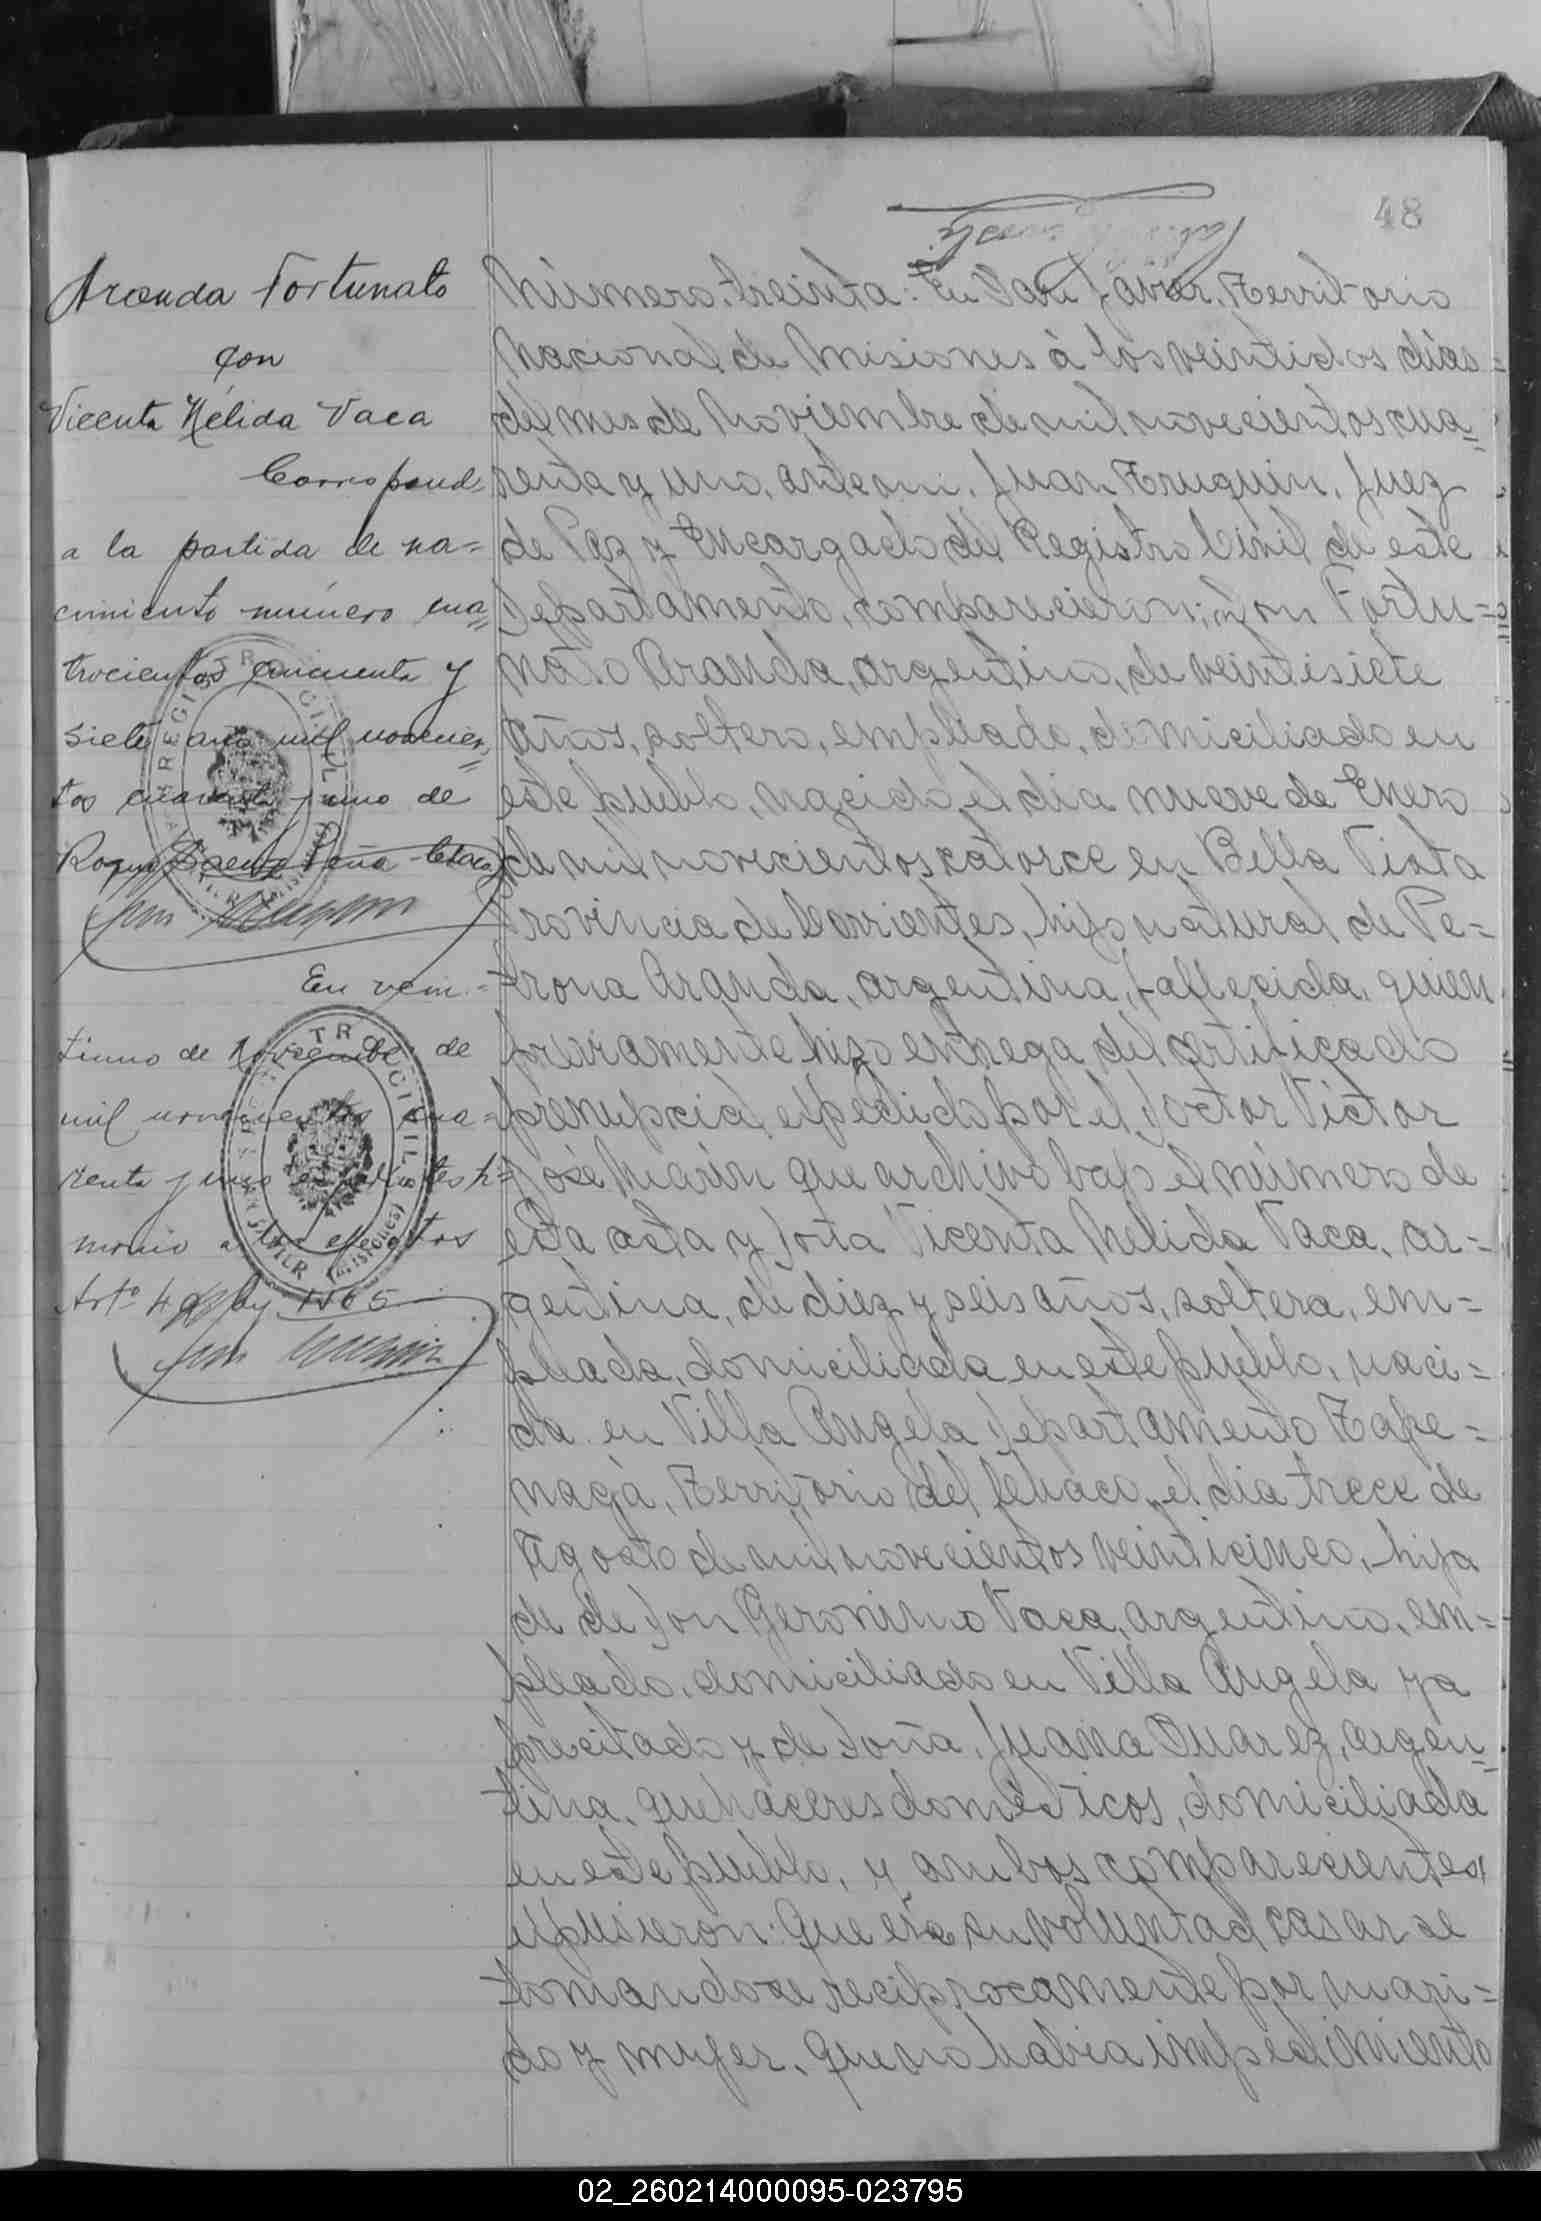 48
Aranda Fortunato
con
Vicenta Nélida Vaca
Correspond
a la partida de na=
cimiento número cua=
trocientos cincuenta y
siete año mil novecien=
tos cuarenta y uno de
Roque Saenz Peña - Chaco
En vein=
tiuno de Noviembre de
mil novecientos cua=
renta y uno
monio a los efectos
Arto 4 1565
REGISTRO CIVIL
REGISTRO CIVIL
SAN JAVIER (MISIONES)
Número treinta: En San Javier, Territorio
Nacional de Misiones á los veintidos dias=
del mes de Noviembre de mil novecientos cua=
renta y uno, ante mi, Juan Truquin, Juez
de Paz y Encargado del Registro Civil de este
Departamento, comparecieron; Don Fortu=
nato Aranda, argentino, de veintisiete
años, soltero, empleado, domiciliado en
este pueblo, nacido el dia nueve de Enero
de mil novecientos catorce en Bella Vista
Provincia de Corrientes, hijo natural de Pe=
trona Aranda, argentina, fallecida, quien
previamente hizo entrega del certificado
prenupcial expedido por el Doctor Victor
José Marin que archivo bajo el número de
esta acta y Doña Vicenta Nelida Vaca, ar=
gentina, de diez y seis años, soltera, em=
pleada, domiciliada en este pueblo, naci=
da en Villa Angela Departamento Tape=
nagá, Territorio del Chaco, el dia trece de
Agosto de mil novecientos veinticinco, hija
de de Don Geronimo Vaca, argentino, em=
pleado, domiciliado en Villa Angela ya
precitado y de Doña Juana Suarez, argen=
tina, quehaceres domésticos, domiciliada
en este pueblo, y ambos comparecientes
expusieron: Que era su voluntad casarse
tomandose reciprocamente por mari=
do y mujer, que no habia impedimiento
02_260214000095-023795